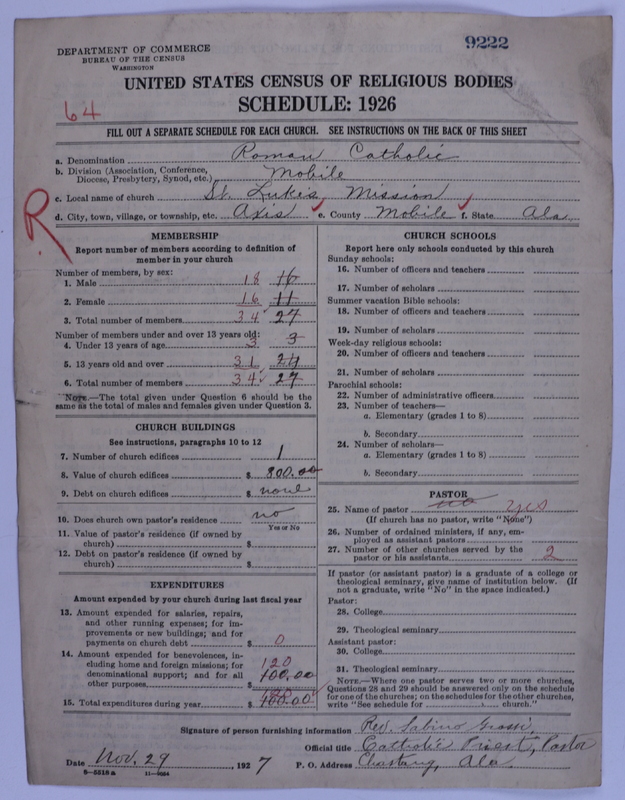 9222
DEPARTMENT OF COMMERCE
BUREAU OF THE CENSUS
WASHINGTON
UNITED STATES CENSUS OF RELIGIOUS BODIES
SCHEDULE: 1926
64
FILL OUT A SEPARATE SCHEDULE FOR EACH CHURCH. SEE INSTRUCTIONS ON THE BACK OF THIS SHEET
R
a. Denomination Roman Catholic
b. Division (Association, Conference, Diocese, Presbytery, Synod, etc.) Mobile
c. Local name of church St. Lukes Mission
d. City, town, village, or township, etc. Axis e. County Mobile f. State Ala
MEMBERSHIP
Report number of members according to definition of
member in your church
Number of members, by sex:
1. Male 18 16
2. Female 16 11
3. Total number of members 34 27
Number of members under and over 13 years old:
4. Under 13 years of age 3 3
5. 13 years old and over 31 24
6. Total number of members 34 27
NOTE.—The total given under Question 6 should be the
same as the total of males and females given under Question 3.
CHURCH BUILDINGS
See instructions, paragraphs 10 to 12
7. Number of church edifices 1
8. Value of church edifices $ 800.00
9. Debt on church edifices $ none
10. Does church own pastor's residence no
Yes or No
11. Value of pastor's residence (if owned by
church) $
12. Debt on pastor's residence (if owned by
church) $
EXPENDITURES
Amount expended by your church during last fiscal year
13. Amount expended for salaries, repairs,
and other running expenses; for im-
provements or new buildings; and for
payments on church debt $ 0
14. Amount expended for benevolences, in-
cluding home and foreign missions; for 120
denominational support; and for all 100.00
other purposes $
15. Total expenditures during year $ 120 100.00
CHURCH SCHOOLS
Report here only schools conducted by this church
Sunday schools:
16. Number of officers and teachers
17. Number of scholars
Summer vacation Bible schools:
18. Number of officers and teachers
19. Number of scholars
Week-day religious schools:
20. Number of officers and teachers
21. Number of scholars
Parochial schools:
22. Number of administrative officers
23. Number of teachers—
a. Elementary (grades 1 to 8)
b. Secondary
24. Number of scholars—
a. Elementary (grades 1 to 8)
b. Secondary
PASTOR
25. Name of pastor no yes
(If church has no pastor, write "None")
26. Number of ordained ministers, if any, em-
ployed as assistant pastors
27. Number of other churches served by the
pastor or his assistants 2
If pastor (or assistant pastor) is a graduate of a college or
theological seminary, give name of institution below. (If
not a graduate, write "No" in the space indicated.)
Pastor:
28. College
29. Theological seminary
Assistant pastor:
30. College
31. Theological seminary
NOTE.—Where one pastor serves two or more churches,
Questions 28 and 29 should be answered only on the schedule
for one of the churches; on the schedules for the other churches,
write "See schedule for church."
Signature of person furnishing information Rev. Sabino Grossi
Official title Catholic Priest, Pastor
Date Nov. 29, 1927 P. O. Address Chastang, Ala.
8—5518a 11—9024